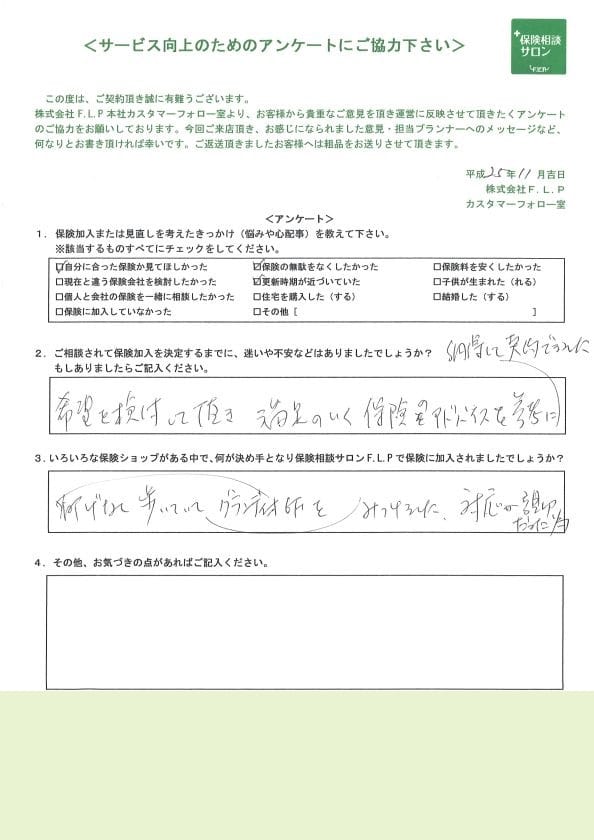 ＜サービス向上のためのアンケートにご協力下さい＞
保険相談
サロン
F.L.P
この度は、ご契約頂き誠に有難うございます。
株式会社F.L.P本社カスタマーフォロー室より、お客様から貴重なご意見を頂き運営に反映させて頂きたくアンケート
のご協力をお願いしております。今回ご来店頂き、お感じになられました意見・担当プランナーへのメッセージなど、
何なりとお書き頂ければ幸いです。ご返送頂きましたお客様へは粗品をお送りさせて頂きます。
平成25年11月吉日
株式会社F.L.P
カスタマーフォロー室
＜アンケート＞
1．保険加入または見直しを考えたきっかけ（悩みや心配事）を教えて下さい。
※該当するものすべてにチェックをしてください。
☑自分に合った保険か見てほしかった ☑保険の無駄をなくしたかった □保険料を安くしたかった
□現在と違う保険会社を検討したかった ☑更新時期が近づいていた □子供が生まれた（れる）
□個人と会社の保険を一緒に相談したかった □住宅を購入した（する） □結婚した（する）
□保険に加入していなかった □その他 [ ]
2．ご相談されて保険加入を決定するまでに、迷いや不安などはありましたでしょうか？
もしありましたらご記入ください。
希望を検討して頂き 満足のいく 保険のアドバイスを参考に
納得して契約できました
3．いろいろな保険ショップがある中で、何が決め手となり保険相談サロンF.L.Pで保険に加入されましたでしょうか？
何げなく歩いていて、 みつけました、対応が親切
だった
4．その他、お気づきの点があればご記入ください。